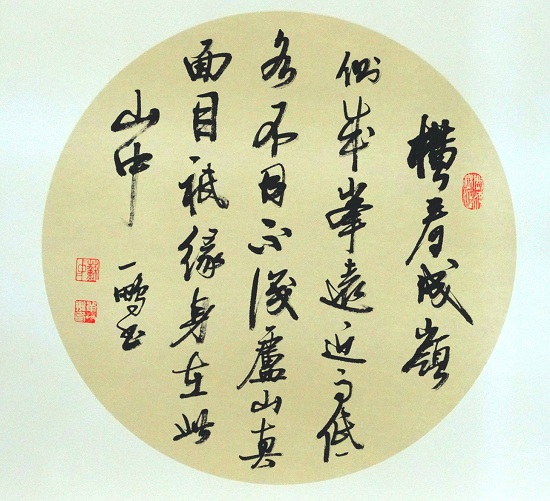 横看成嶺
側成峯遠近高低
各不同不識廬山真
面目祇緣身在此
山中
一鵬书